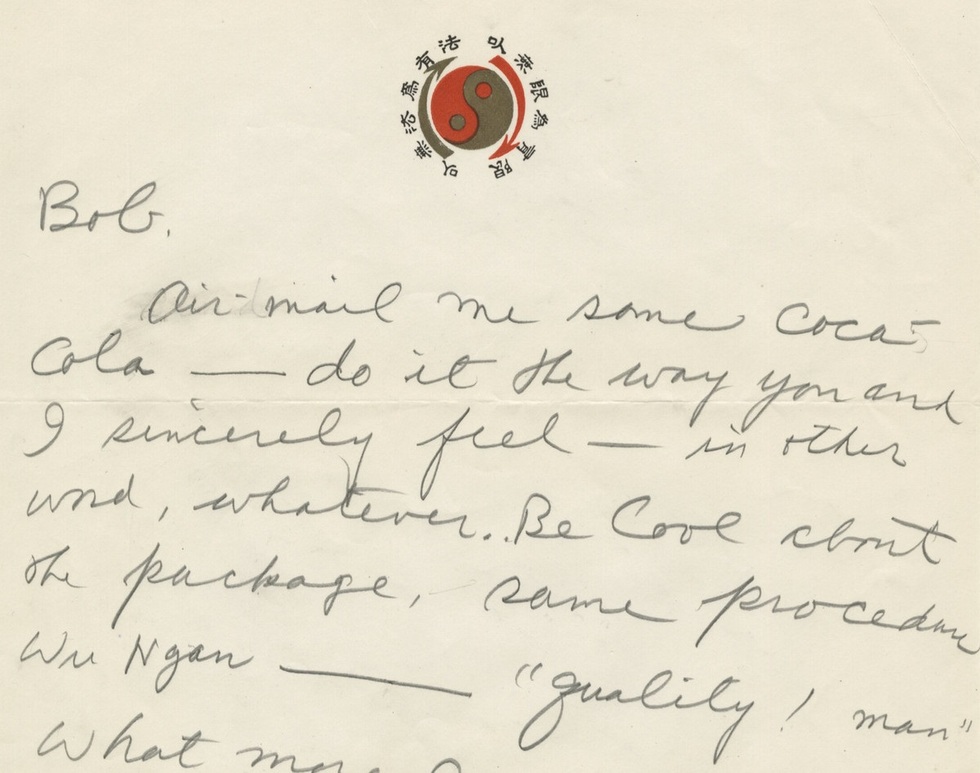 以無法爲有法
以無限爲有限
Bob,
Air-mail me some Coca-
Cola — do it the way you and
I sincerely feel — in other
word, whatever.. Be Cool about
the package, same procedure
Wu Ngan — "quality! man"
What more